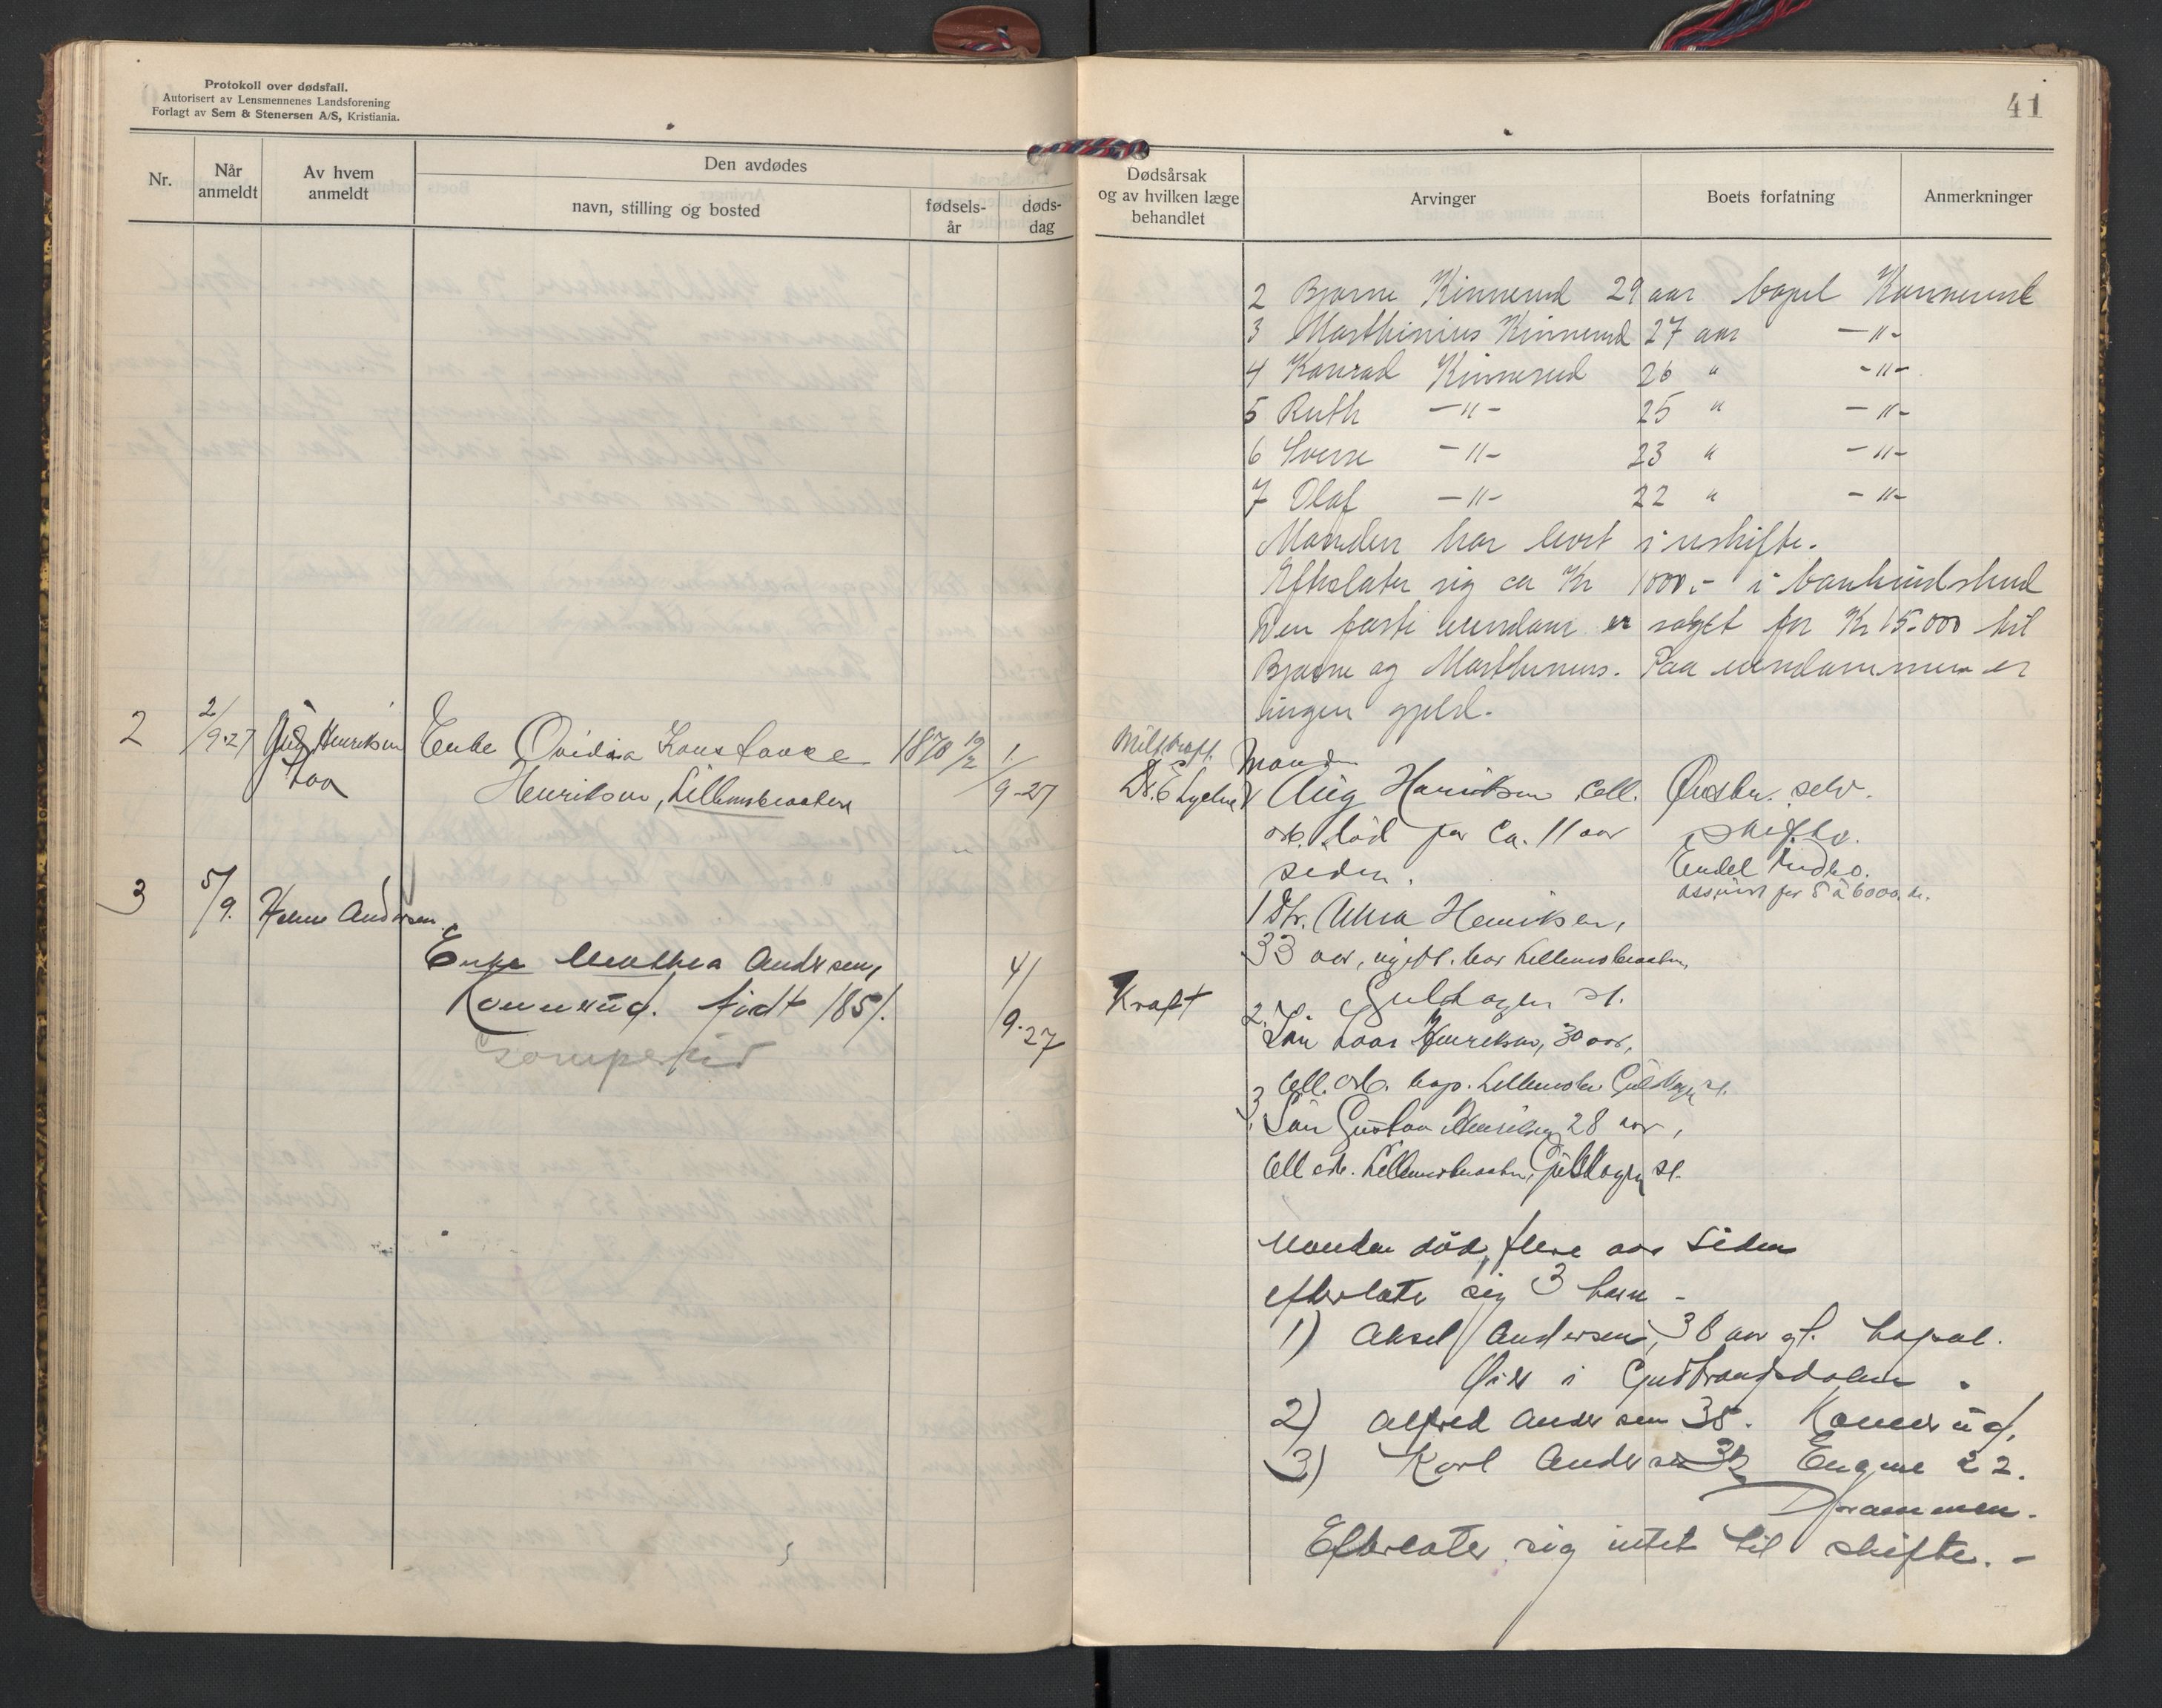 Protokoll over dødsfall.
Autorisert av Lensmennenes Landsforening
Forlagt av Sem & Stenersen A/S, Kristiania.
Nr.
Når anmeldt
Av hvem anmeldt
Den avdødes
navn, stilling og bosted
fødsels-år
døds-dag
2 2/9-27 Henriksen Enke Ovidia 1870 19/2 1/9-27
Henriksen, Lillemobraaten
3 5/9. Andersen
Enke Mathea Andersen, 4/9-27
Konnerud. født 1851.
41
Dødsårsak
og av hvilken læge
behandlet
Arvinger
Boets forfatning
Anmerkninger
2 Bjarne Kinnerud 29 aar bopel Konnerud
3 Marthinius Kinnerud 27 aar —"-
4 Konrad Kinnerud 26 " -"-
5 Ruth —"- 25 " —"-
6 Sverre —"- 23 " —"-
7 Olaf —"- 22 " —"-
Manden har levet i uskifte.
Efterlater sig ca Kr 1000.- i
Den faste eiendom er solgt for Kr 15.000 til
Bjarne og Marthinius. Paa eiendommen er
ingen gjeld.
Manden
Aug Henriksen cell.
ark. død for ca. 11 aar
siden.
selv.
skifte.
Endel indbo.
assurert for 5 à 6000 kr.
1 Dtr. Anna Henriksen,
33 aar, ugift. bor Lillemobraaten,
Guldhogen st.
Kraft
2. Søn Henriksen, 30 aar,
cell. arb. bop. Guldhogen st.
3. Søn Gustav Henriksen 28 aar,
cell arb. Lillemobraaten, Guldhogen st.
Manden død, flere aar siden
efterlater sig 3 barn -
1) Aksel Andersen, 38 aar gl. bopæl.
i Gudbrandsdalen.
2) Alfred Andersen 35. Konnerud.
3) Karl Andersen Engene 22.
Drammen.
Efterlater sig intet til skifte. -